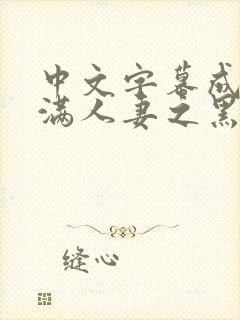 中文字幕成
满人妻之黑
缝心